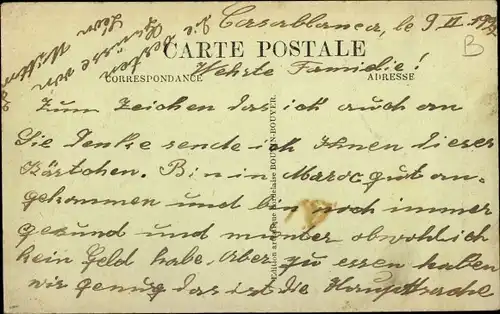 Casablanca, le 9 II
CARTE POSTALE
B
CORRESPONDANCE
ADRESSE
Wehrte Familie!
Zum Zeichen das ich auch an
Sie denke sende ich Ihnen dieses
Kärtchen. Bin in Maroc gut an-
gekommen und bin noch immer
gesund und munter obwohl ich
kein Geld habe. Aber zu essen haben
wir genug das ist die Hauptsache
die besten
Grüsse von